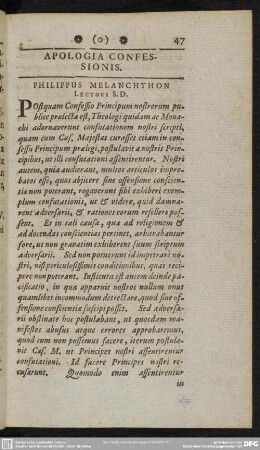 (o) 47
APOLOGIA CONFES-
SIONIS.
PHILIPPUS MELANCHTHON
Lectori S.D.
POstquam Confessio Principum nostrorum pu-
blice prælecta est, Theologi quidam ac Mona-
chi adornaverunt confutationem nostri scripti,
quam cum Cæs. Majestas curasset etiam in con-
sessu Principum prælegi, postulavit a nostris Prin-
cipibus, ut illi confutationi assentirentur. Nostri
autem, quia audierant, multos articulos impro-
batos esse, quos abjicere sine offensione conscien-
tiæ non poterant, rogaverunt sibi exhiberi exem-
plum confutationis, ut & videre, quid damna-
rent adversarii, & rationes eorum refellere pos-
sent. Et in tali causa, quæ ad religionem &
ad docendas conscientias pertinet, arbitrabantur
fore, ut non gravatim exhiberent suum scriptum
adversarii. Sed non potuerunt id impetrari no-
stri, nisi periculosissimis conditionibus, quas reci-
pere non poterant. Instituta est autem deinde pa-
cificatio, in qua apparuit nostros nullum onus
quamlibet incommodum detrectare, quod sine of-
fensione conscientiæ suscipi posset. Sed adversa-
rii obstinate hoc postulabant, ut quosdam ma-
nifestos abusus atque errores approbaremus,
quod cum non possemus facere, iterum postula-
vit Cæs. M. ut Principes nostri assentirentur
confutationi. Id facere Principes nostri re-
cusarunt. Quomodo enim assentirentur
in